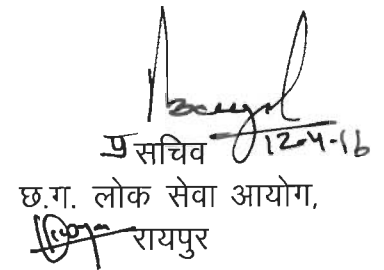 12-4-16
प्र सचिव
छ.ग. लोक सेवा आयोग,
रायपुर